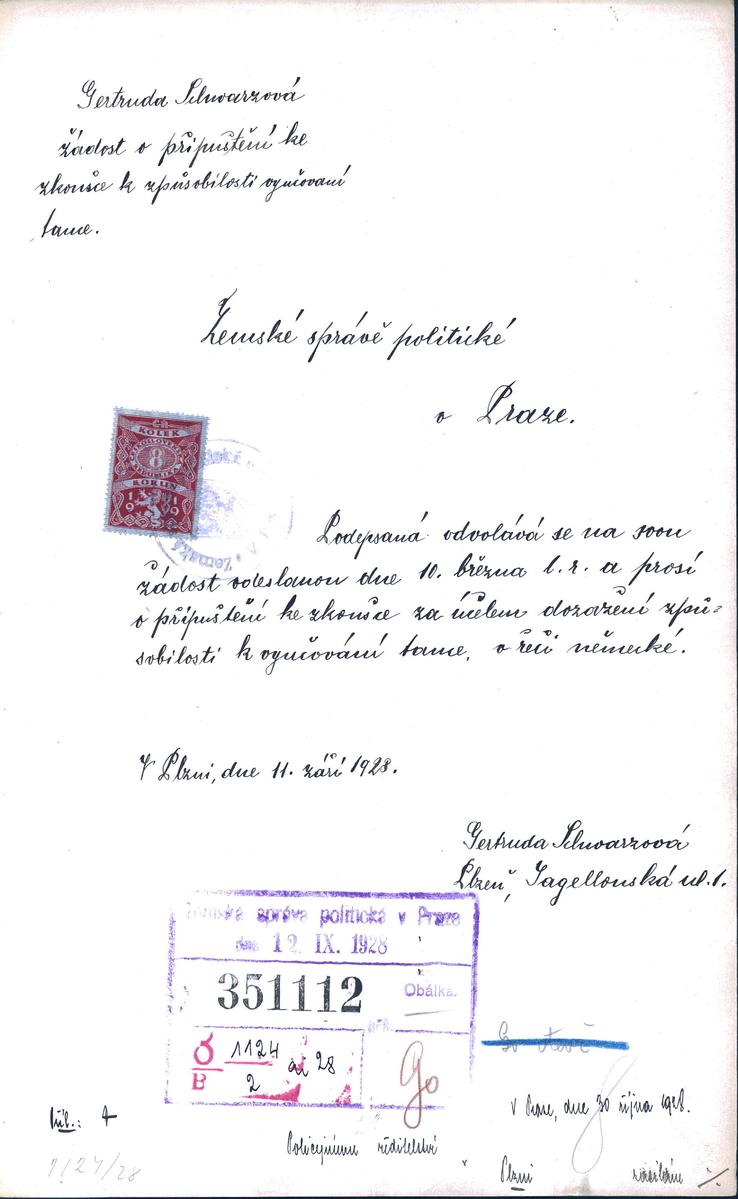 Gertruda Schwarzová
žádost o připuštění ke
zkoušce k způsobilosti vyučovaní
tance.
Zemské správě politické
v Praze.
KOLEK
8
KORUN
1919
Podepsaná odvolává se na svou
žádost odeslanou dne 10. března t. r. a prosí
o připuštění ke zkoušce za účelem dozažení způ=
sobilosti k vyučování tance, v řeči německé.
V Plzni, dne 11. září 1928.
Gertruda Schwarzová
Plzeň, Jagellonská ul. 1.
Zemská správa politická v Praze
dne 12. IX. 1928
351112
Obálka.
1124
2
28
B
Go
V Praze, dne 30 října 1928.
Příl.: 1
Policejnímu ředitelství
v
Plzni
1124/28